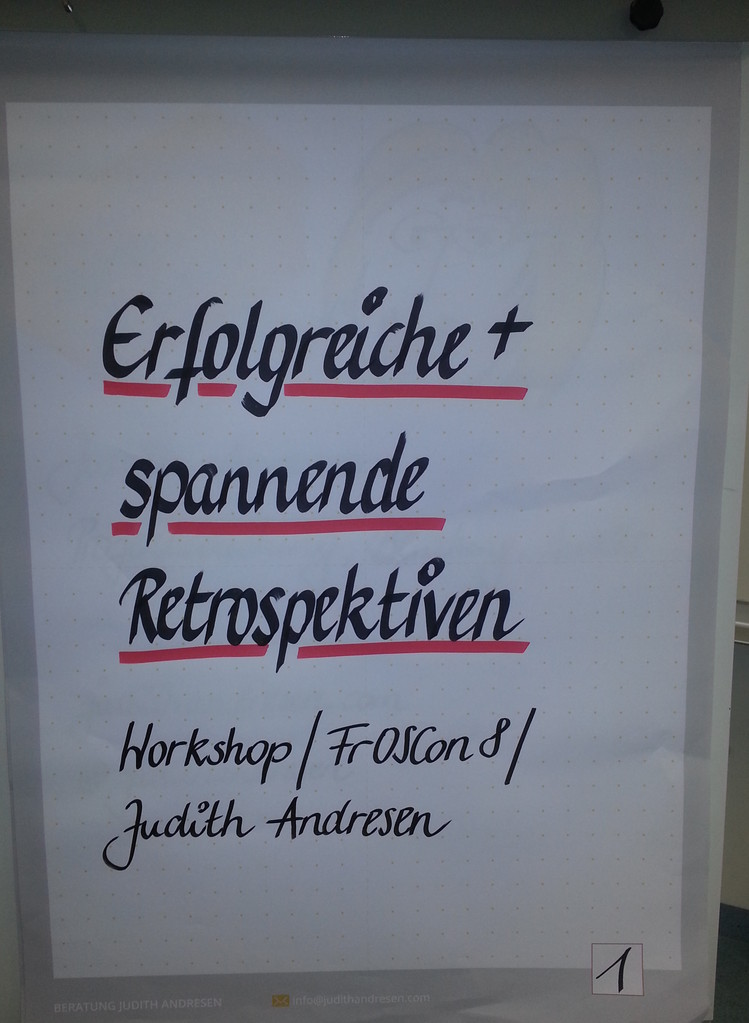 Erfolgreiche +
spannende
Retrospektiven
Workshop / FrOSCon 8 /
Judith Andresen
1
BERATUNG JUDITH ANDRESEN info@judithandresen.com